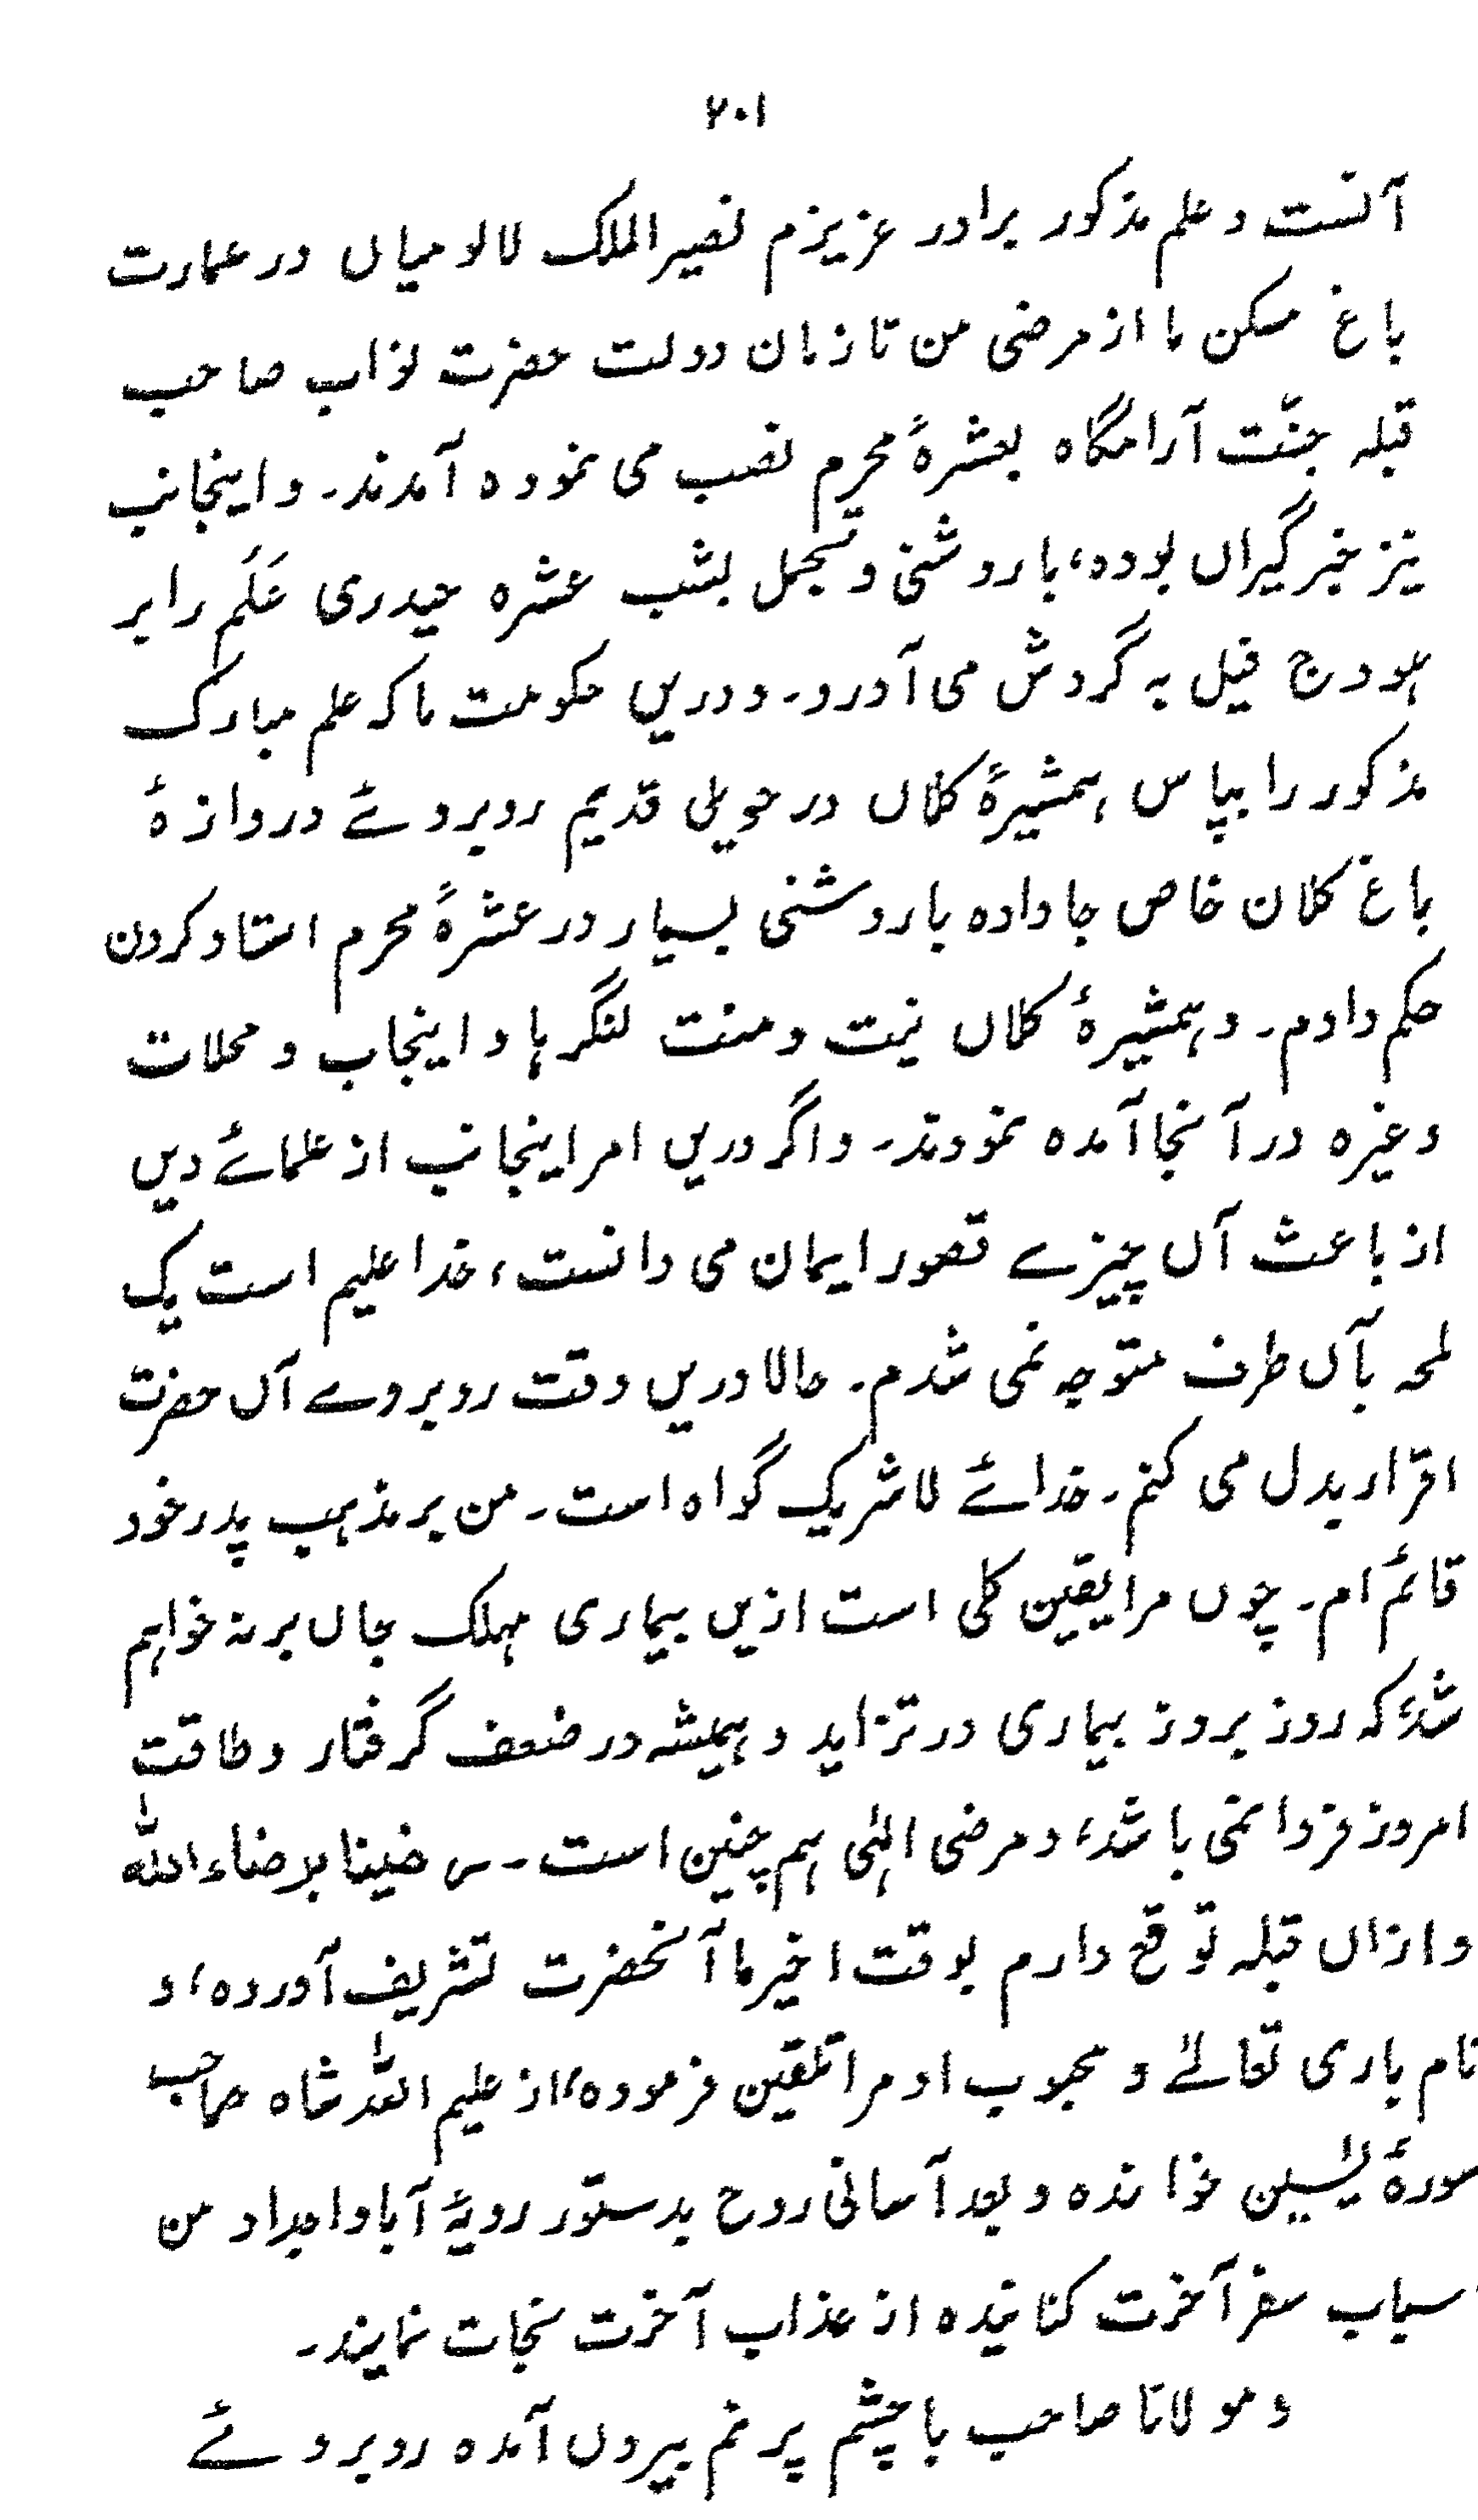 ۲۰۱
آنست و علم مذکور برادر عزیزم نصیر الملک لالو میاں در عمارت
باغ مسکن ما از مرضی من تا زمان دولت حضرت نواب صاحب
قبلہ جنّت آرامگاہ بعشرۂ محرم نصب می نمودہ آمدند۔ و اینجانب
نیز خبر گیراں بودہ، با روشنی و تجمل بشب عشرہ حیدری عَلَم را بر
ہودج فیل بہ گردش می آورد۔ و دریں حکومت ما کہ علم مبارک
مذکور را بپاس ہمشیرۂ کلاں در حویلی قدیم روبروئے دروازۂ
باغ کلان خاص جا دادہ با روشنی بسیار در عشرۂ محرم استاد کردن
حکم دادم۔ و ہمشیرۂ کلاں نیت و منت لنگرہا و اینجاب و محلات
وغیرہ در آنجا آمدہ نمودند۔ و اگر دریں امر اینجانب از علمائے دیں
از باعث آں چیزے قصور ایمان می دانست، خدا علیم است یک
لمحہ بآں طرف متوجہ نمی شدم۔ حالا دریں وقت روبروے آں حضرت
اقرار بدل می کنم۔ خدائے لاشریک گواہ است۔ من بر مذہب پدر خود
قائم ام۔ چوں مرا یقین کلی است ازیں بیماری مہلک جاں بر نہ خواہم
شد، کہ روز بروز بیماری در تزاید و ہمیشہ در ضعف گرفتار و طاقت
امروز فردا نمی باشد، و مرضی الہٰی ہم چنین است۔ رضینا برضاء اللہ
و ازاں قبلہ توقع دارم بوقت اخیر ما آنحضرت تشریف آوردہ، و
نام باری تعالےٰ و محبوب او مرا تلقین فرمودہ، از علیم اللہ شاہ صاحب
سورۂ یٰسین خواندہ و بعد آسانی روح بدستور رویۂ آبا و اجداد من
اسباب سفر آخرت کنانیدہ از عذاب آخرت نجات نمایند۔
و مولانا صاحب با چشم پر نم بیروں آمدہ روبروئے